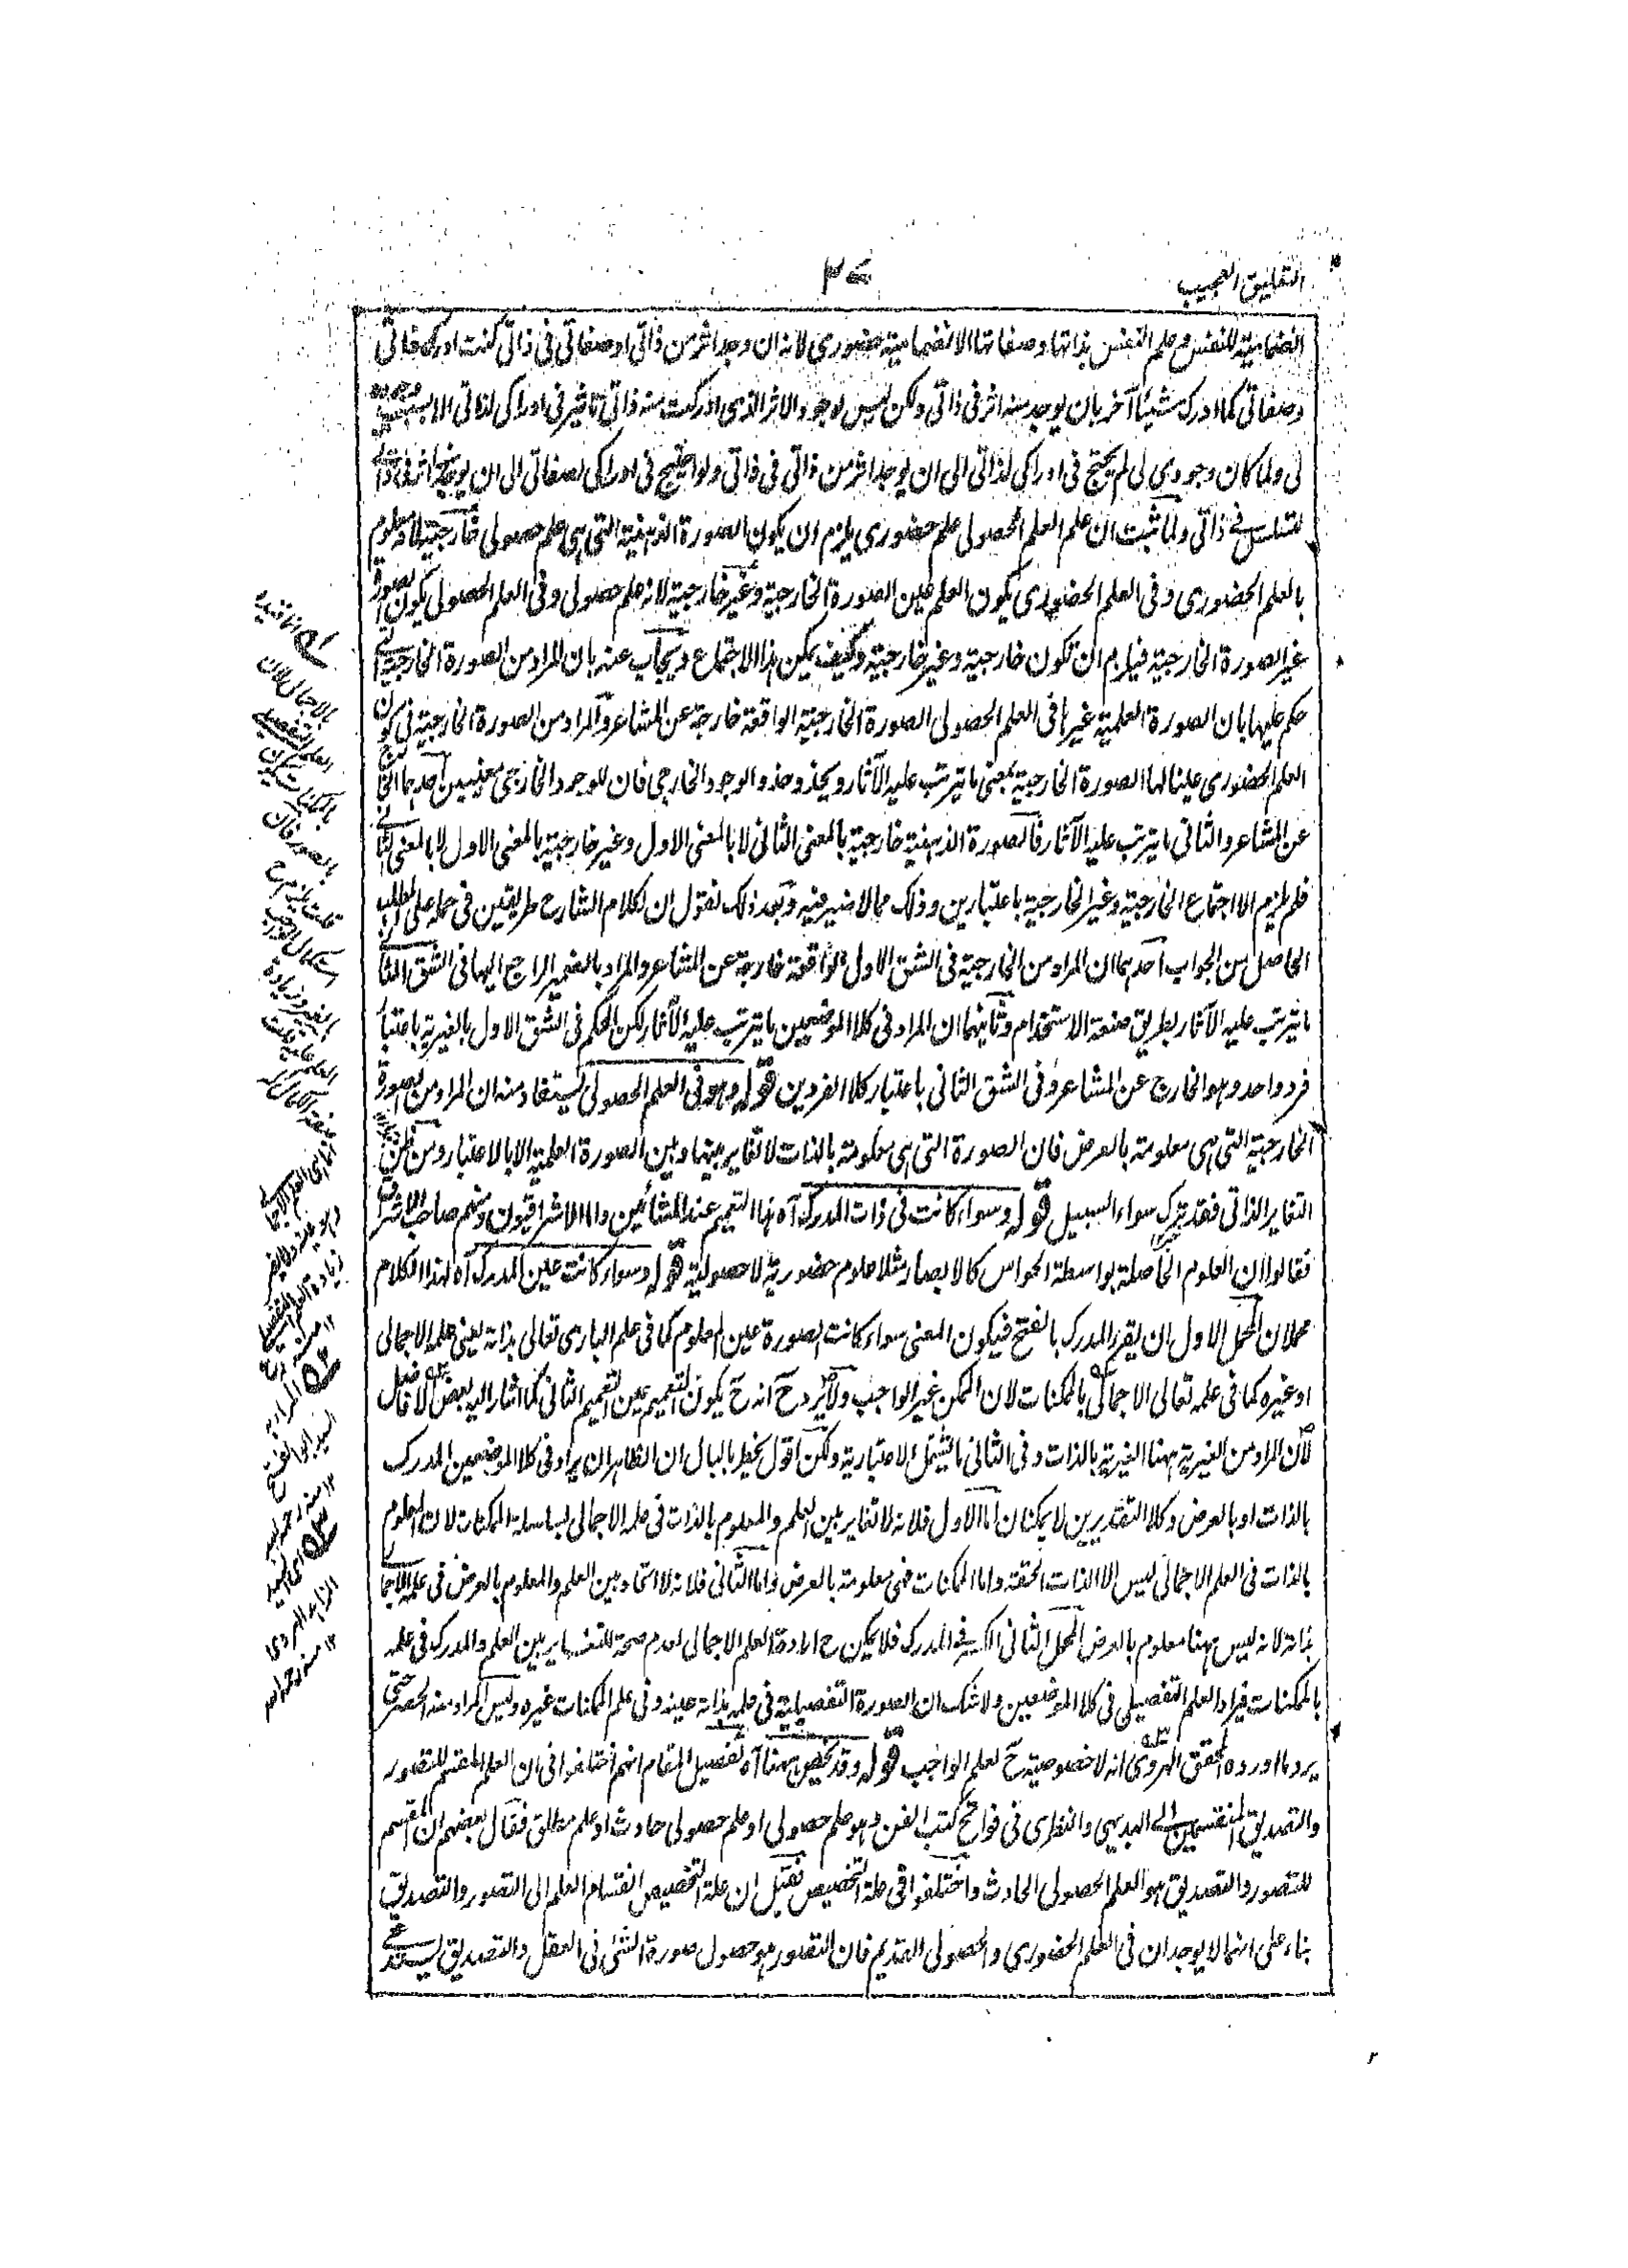 التعليق العجيب
٣٧
انضمامية للنفس وعلم النفس بذاتها وصفاتها الانضمامية حضوري لانه ان وجد اثر من ذاتي او صفاتي في ذاتي كنت ادرك ذاتي
وصفاتي كما ادرك شيئا آخر بان يوجد منه اثر في ذاتي ولكن ليس لوجود الاثر الذي ادركت منه ذاتي تاثير في ادراكي لذاتي الا بسبب وجوده
لي ولما كان وجودي لي لم يحتج في ادراكي لذاتي الى ان يوجد اثر من ذاتي في ذاتي ولو احتيج في ادراكي لصفاتي الى ان يوجد اثر في ذاتي
لتسلسل في ذاتي ولما ثبت ان علم العلم الحصولي علم حضوري يلزم ان يكون الصورة الذهنية التي هي علم حصولي خارجية لانه معلوم
بالعلم الحضوري وفي العلم الحضوري يكون العلم عين الصورة الخارجية وغير خارجية لانه علم حصولي وفي العلم الحصولي يكون الصورة
غير الصورة الخارجية فيلزم ان تكون خارجية وغير خارجية وكيف يمكن هذا الاجتماع ويجاب عنه بان المراد من الصورة الخارجية التي
حكم عليها بان الصورة العلمية غيرها في العلم الحصولي الصورة الخارجية الواقعة خارجة عن المشاعر والمراد من الصورة الخارجية في كون
العلم الحضوري عينا لها الصورة الخارجية بمعنى ما يترتب عليه الآثار ويحذو حذو الوجود الخارجي فان للوجود الخارجي معنيين احدهما الخارج
عن المشاعر والثاني ما يترتب عليه الآثار فالصورة الذهنية خارجية بالمعنى الثاني لا بالمعنى الاول وغير خارجية بالمعنى الاول لا بالمعنى الثاني
فلم يلزم الا اجتماع الخارجية وغير الخارجية باعتبارين وذلك مما لا ضير فيه وبعد ذلك نقول ان لكلام الشارح طريقين في حمله على المطلب
الحاصل من الجواب احدهما ان المراد من الخارجية في الشق الاول الواقعة خارجة عن المشاعر والمراد بالضمير الراجع اليها في الشق الثاني
ما يترتب عليه الآثار بطريق صنعة الاستخدام وثانيهما ان المراد في كلا الموضعين ما يترتب عليه الآثار لكن الحكم في الشق الاول بالغيرية باعتبار
فرد واحد وهو الخارج عن المشاعر وفي الشق الثاني باعتبار كلا الفردين قوله وهو في العلم الحصولي يستفاد منه ان المراد من الصورة
الخارجية التي هي معلومة بالعرض فان الصورة التي هي معلومة بالذات لا تغاير بينها وبين الصورة العلمية الا بالاعتبار ومن ظن
التغاير الذاتي فقد ترك سواء السبيل قوله وسواء كانت في ذات المدرك آه هذا التعميم عند المشائين واما الاشراقيون ومنهم صاحب الاشراق
فقالوا ان العلوم الحاصلة بواسطة الحواس كالابصار مثلا علوم حضورية لا حصولية قوله وسواء كانت عين المدرك آه لهذا الكلام
محملان المحمل الاول ان يقرء المدرك بالفتح فيكون المعنى سواء كانت الصورة عين المعلوم كما في علم الباري تعالى بذاته يعني علمه الاجمالي
او غيره كما في علمه تعالى الاجمالي بالممكنات لان الممكن غير الواجب ولا يرد ح انه ح يكون التعميم عين التعميم الثاني كما اشار اليه بعض الافاضل
لان المراد من الغيرية ههنا الغيرية بالذات وفي الثاني ما يشتمل الاعتبارية ولكن اقول يخطر بالبال ان الظاهر ان يراد في كلا الموضعين المدرك
بالذات او بالعرض وكلا التقديرين لا يمكنان اما الاول فلانه لا تغاير بين العلم والمعلوم بالذات في علمه الاجمالي بسلسلة الممكنات لان المعلوم
بالذات في العلم الاجمالي ليس الا الذات الحقة واما الممكنات فهي معلومة بالعرض واما الثاني فلانه لا اتحاد بين العلم والمعلوم بالعرض في علمه الاجمالي
بذاته لانه ليس ههنا معلوم بالعرض المحمل الثاني الكسر في المدرك فلا يمكن ح ارادة العلم الاجمالي لعدم صحة التغاير بين العلم والمدرك في علمه
بالممكنات فيراد العلم التفصيلي في كلا الموضعين ولا شك ان الصورة التفصيلية في علمه بذاته عينه وفي علم الممكنات غيره وليس المراد منه الحصر حتى
يرد ما اورده المحقق الهروي انه لا خصوصية ح لعلم الواجب قوله وقد يخص ههنا آه تفصيل المقام انهم اختلفوا في ان العلم المقسم للتصور
والتصديق المنقسمين الى البديهي والنظري في فواتح كتب الفن هو علم حصولي او علم حصولي حادث او علم مطلق فقال بعضهم ان المقسم
للتصور والتصديق هو العلم الحصولي الحادث واختلفوا في علة التخصيص فقيل ان علة التخصيص انقسام العلم الى التصور والتصديق
بناء على انهما لا يوجدان في العلم الحضوري والحصولي القديم فان التصور هو حصول صورة الشئ في العقل والتصديق يستدعي
بالاجمال لان
العلم التفصيلي
بالممكنات يكون
بالصور فان
السيد ابو الفتح
١٢ منه رحمه الله
اي السيد
الزاهد الهروي
١٢ منه رحمه الله